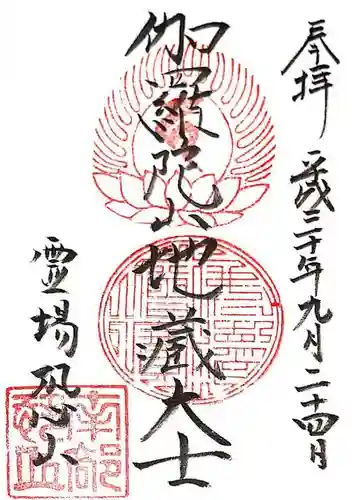 奉拝
平成三十年九月二十四日
伽羅陀山地蔵大士
霊場恐山